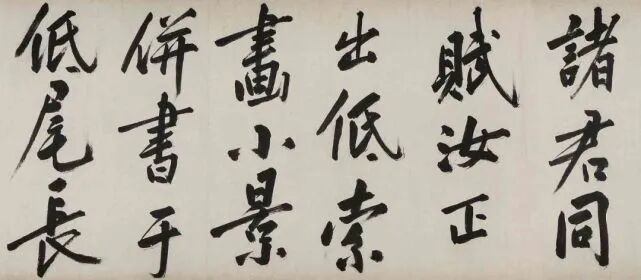 諸君同
賦汝正
出紙索
畫小景
併書于
紙尾長